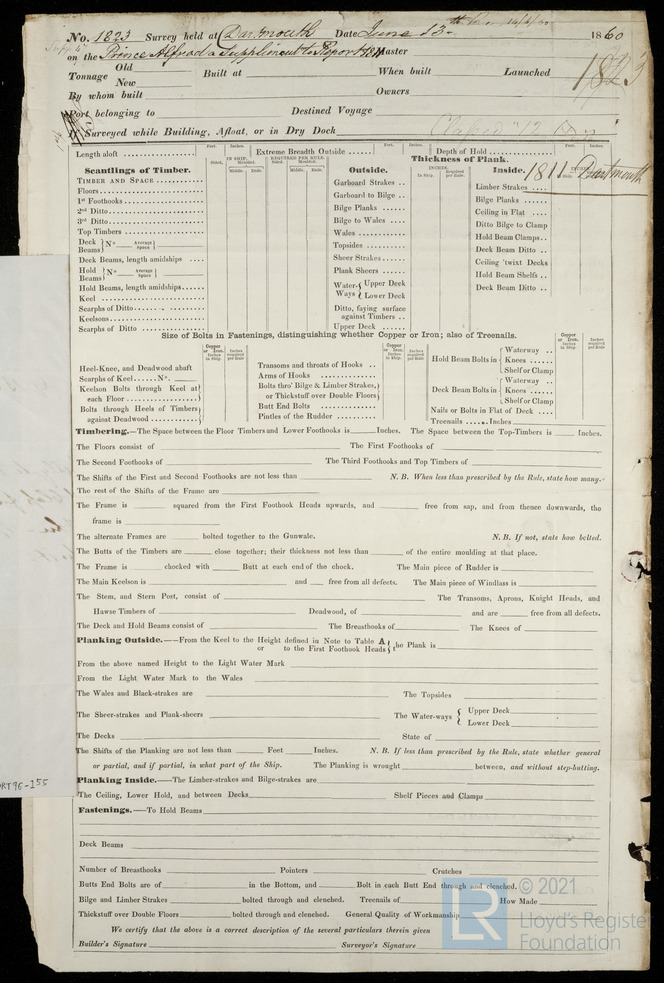 No. 1823 Survey held at Dartmouth Date June 13th 1860
on the Prince Alfred a Suppliment to Report 1811 Master
Tonnage Old New Built at When built Launched
1823
By whom built Owners
Port belonging to Destined Voyage
If Surveyed while Building, Afloat, or in Dry Dock
Classed 12
Length aloft Feet. Inches. Extreme Breadth Outside Feet. Inches. Depth of Hold Feet. Inches.
1811 Dartmouth
Scantlings of Timber. IN SHIP. REQUIRED PER RULE. Outside. Thickness of Plank. Inside.
Timber and Space
Floors
1st Foothooks
2nd Ditto
3rd Ditto
Top Timbers
Deck Beams No Average Space
Deck Beams, length amidships
Hold Beams No Average Space
Hold Beams, length amidships
Keel
Scarphs of Ditto
Keelsons
Scarphs of Ditto
Garboard Strakes
Garboard to Bilge
Bilge Planks
Bilge to Wales
Wales
Topsides
Sheer Strakes
Plank Sheers
Water-Ways Upper Deck
Lower Deck
Ditto, faying surface against Timbers
Upper Deck
Limber Strakes
Bilge Planks
Ceiling in Flat
Ditto Bilge to Clamp
Hold Beam Clamps
Deck Beam Ditto
Ceiling 'twixt Decks
Hold Beam Shelfs
Deck Beam Ditto
Size of Bolts in Fastenings, distinguishing whether Copper or Iron; also of Treenails.
Heel-Knee, and Deadwood abaft
Scarphs of Keel No.
Keelson Bolts through Keel at each Floor
Bolts through Heels of Timbers against Deadwood
Transoms and throats of Hooks
Arms of Hooks
Bolts thro' Bilge & Limber Strakes, or Thickstuff over Double Floors
Butt End Bolts
Pintles of the Rudder
Hold Beam Bolts in Waterway
Knees
Shelf or Clamp
Deck Beam Bolts in Waterway
Knees
Shelf or Clamp
Nails or Bolts in Flat of Deck
Treenails Inches
Timbering.—The Space between the Floor Timbers and Lower Foothooks is Inches. The Space between the Top-Timbers is Inches.
The Floors consist of The First Foothooks of
The Second Foothooks of The Third Foothooks and Top Timbers of
The Shifts of the First and Second Foothooks are not less than N.B. When less than prescribed by the Rule, state how many.
The rest of the Shifts of the Frame are
The Frame is squared from the First Foothook Heads upwards, and free from sap, and from thence downwards, the
frame is
The alternate Frames are bolted together to the Gunwale. N.B. If not, state how bolted.
The Butts of the Timbers are close together; their thickness not less than of the entire moulding at that place.
The Frame is chocked with Butt at each end of the chock. The Main piece of Rudder is
The Main Keelson is and free from all defects. The Main piece of Windlass is
The Stem, and Stern Post, consist of The Transoms, Aprons, Knight Heads, and
Hawse Timbers of Deadwood, of and are free from all defects.
The Deck and Hold Beams consist of The Breasthooks of The Knees of
Planking Outside.—From the Keel to the Height defined in Note to Table A or to the First Foothook Heads the Plank is
From the above named Height to the Light Water Mark
From the Light Water Mark to the Wales
The Wales and Black-strakes are The Topsides
The Sheer-strakes and Plank-sheers The Water-ways Upper Deck
Lower Deck
The Decks State of
The Shifts of the Planking are not less than Feet Inches. N.B. If less than prescribed by the Rule, state whether general
or partial, and if partial, in what part of the Ship. The Planking is wrought between, and without step-butting.
Planking Inside.—The Limber-strakes and Bilge-strakes are
The Ceiling, Lower Hold, and between Decks Shelf Pieces and Clamps
Fastenings.—To Hold Beams
Deck Beams
Number of Breasthooks Pointers Crutches
Butts End Bolts are of in the Bottom, and Bolt in each Butt End through and clenched.
Bilge and Limber Strakes bolted through and clenched. Treenails of How Made
Thickstuff over Double Floors bolted through and clenched. General Quality of Workmanship
We certify that the above is a correct description of the several particulars therein given
Builder's Signature Surveyor's Signature
LR © 2021
Lloyd's Register
Foundation